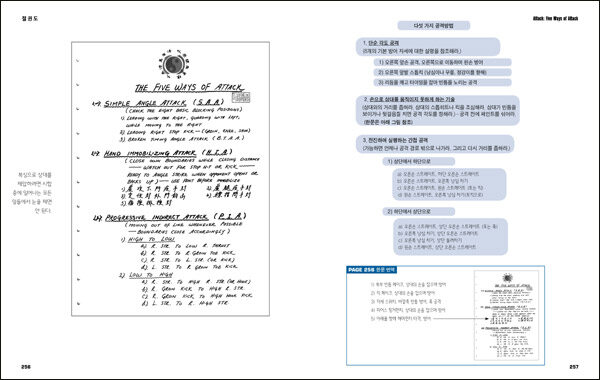 절권도
THE FIVE WAYS OF ATTACK
1.) SIMPLE ANGLE ATTACK (S.A.A)
(CHECK THE EIGHT BASIC BLOCKING POSITIONS)
1) LEADING WITH THE RIGHT, GUARDING WITH LEFT,
WHILE MOVING TO THE RIGHT
2) LEADING RIGHT STOP KICK — (GROIN, KNEE, SHIN)
3) BROKEN TIMING ANGLE ATTACK (B.T.A.A)
2.) HAND IMMOBILIZING ATTACK (H.I.A)
(CLOSE OWN BOUNDARIES WHILE CLOSING DISTANCE
— WATCH OUT FOR STOP HIT OR KICK —
READY TO ANGLE STRIKE WHEN OPPONENT OPENS OR
BACKS UP) — USE FEINT BEFORE IMMOBILIZE
3.) PROGRESSIVE INDIRECT ATTACK (P.I.A)
(MOVING OUT OF LINE WHENEVER POSSIBLE
— BOUNDARIES CLOSE ACCORDINGLY)
1) HIGH TO LOW
A) R. STR. TO LOW R. THRUST
B) R. STR. TO R. GROIN TOE KICK
C) R. STR. TO L. STR. (OR KICK)
D) L. STR. TO R. GROIN TOE KICK
2) LOW TO HIGH
A) R. STR. TO HIGH R. STR. (OR HOOK)
B) R. GROIN KICK TO HIGH R. STR.
C) R. GROIN KICK TO HIGH HOOK KICK
D) L. STR. TO R. HIGH STR.
복싱으로 상대를
제압하려면 시합
중에 일어나는 모든
일들에서 눈을 떼면
안 된다.
256
Attack: Five Ways of Attack
다섯 가지 공격방법
1. 단순 각도 공격
(8개의 기본 방어 자세에 대한 설명을 참조해라.)
1) 오른쪽 앞손 공격, 오른쪽으로 이동하며 왼손 방어
2) 오른쪽 앞발 스톱킥 (낭심이나 무릎, 정강이를 향해)
3) 리듬을 깨고 타이밍을 잡아 빈틈을 노리는 공격
2. 손으로 상대를 움직이지 못하게 하는 기술
(상대와의 거리를 좁혀라. 상대의 스톱히트나 킥을 조심해라. 상대가 빈틈을
보이거나 뒷걸음질 치면 공격 각도를 정해라) - 공격 전에 페인트를 섞어라.
(한문은 아래 그림 참조)
3. 전진하며 실행하는 간접 공격
(가능하면 언제나 공격 경로 밖으로 나가라. 그리고 다시 거리를 좁혀라.)
1) 상단에서 하단으로
a) 오른손 스트레이트, 하단 오른손 스트레이트
b) 오른손 스트레이트, 오른쪽 낭심 차기
c) 오른손 스트레이트, 왼손 스트레이트 (또는 킥)
2) 하단에서 상단으로
a) 오른손 스트레이트, 상단 오른손 스트레이트 (또는 훅)
b) 오른쪽 낭심 차기, 상단 오른손 스트레이트
c) 오른쪽 낭심 차기, 상단 돌려차기
d) 왼손 스트레이트, 상단 오른손 스트레이트
PAGE 256 한문 번역
257